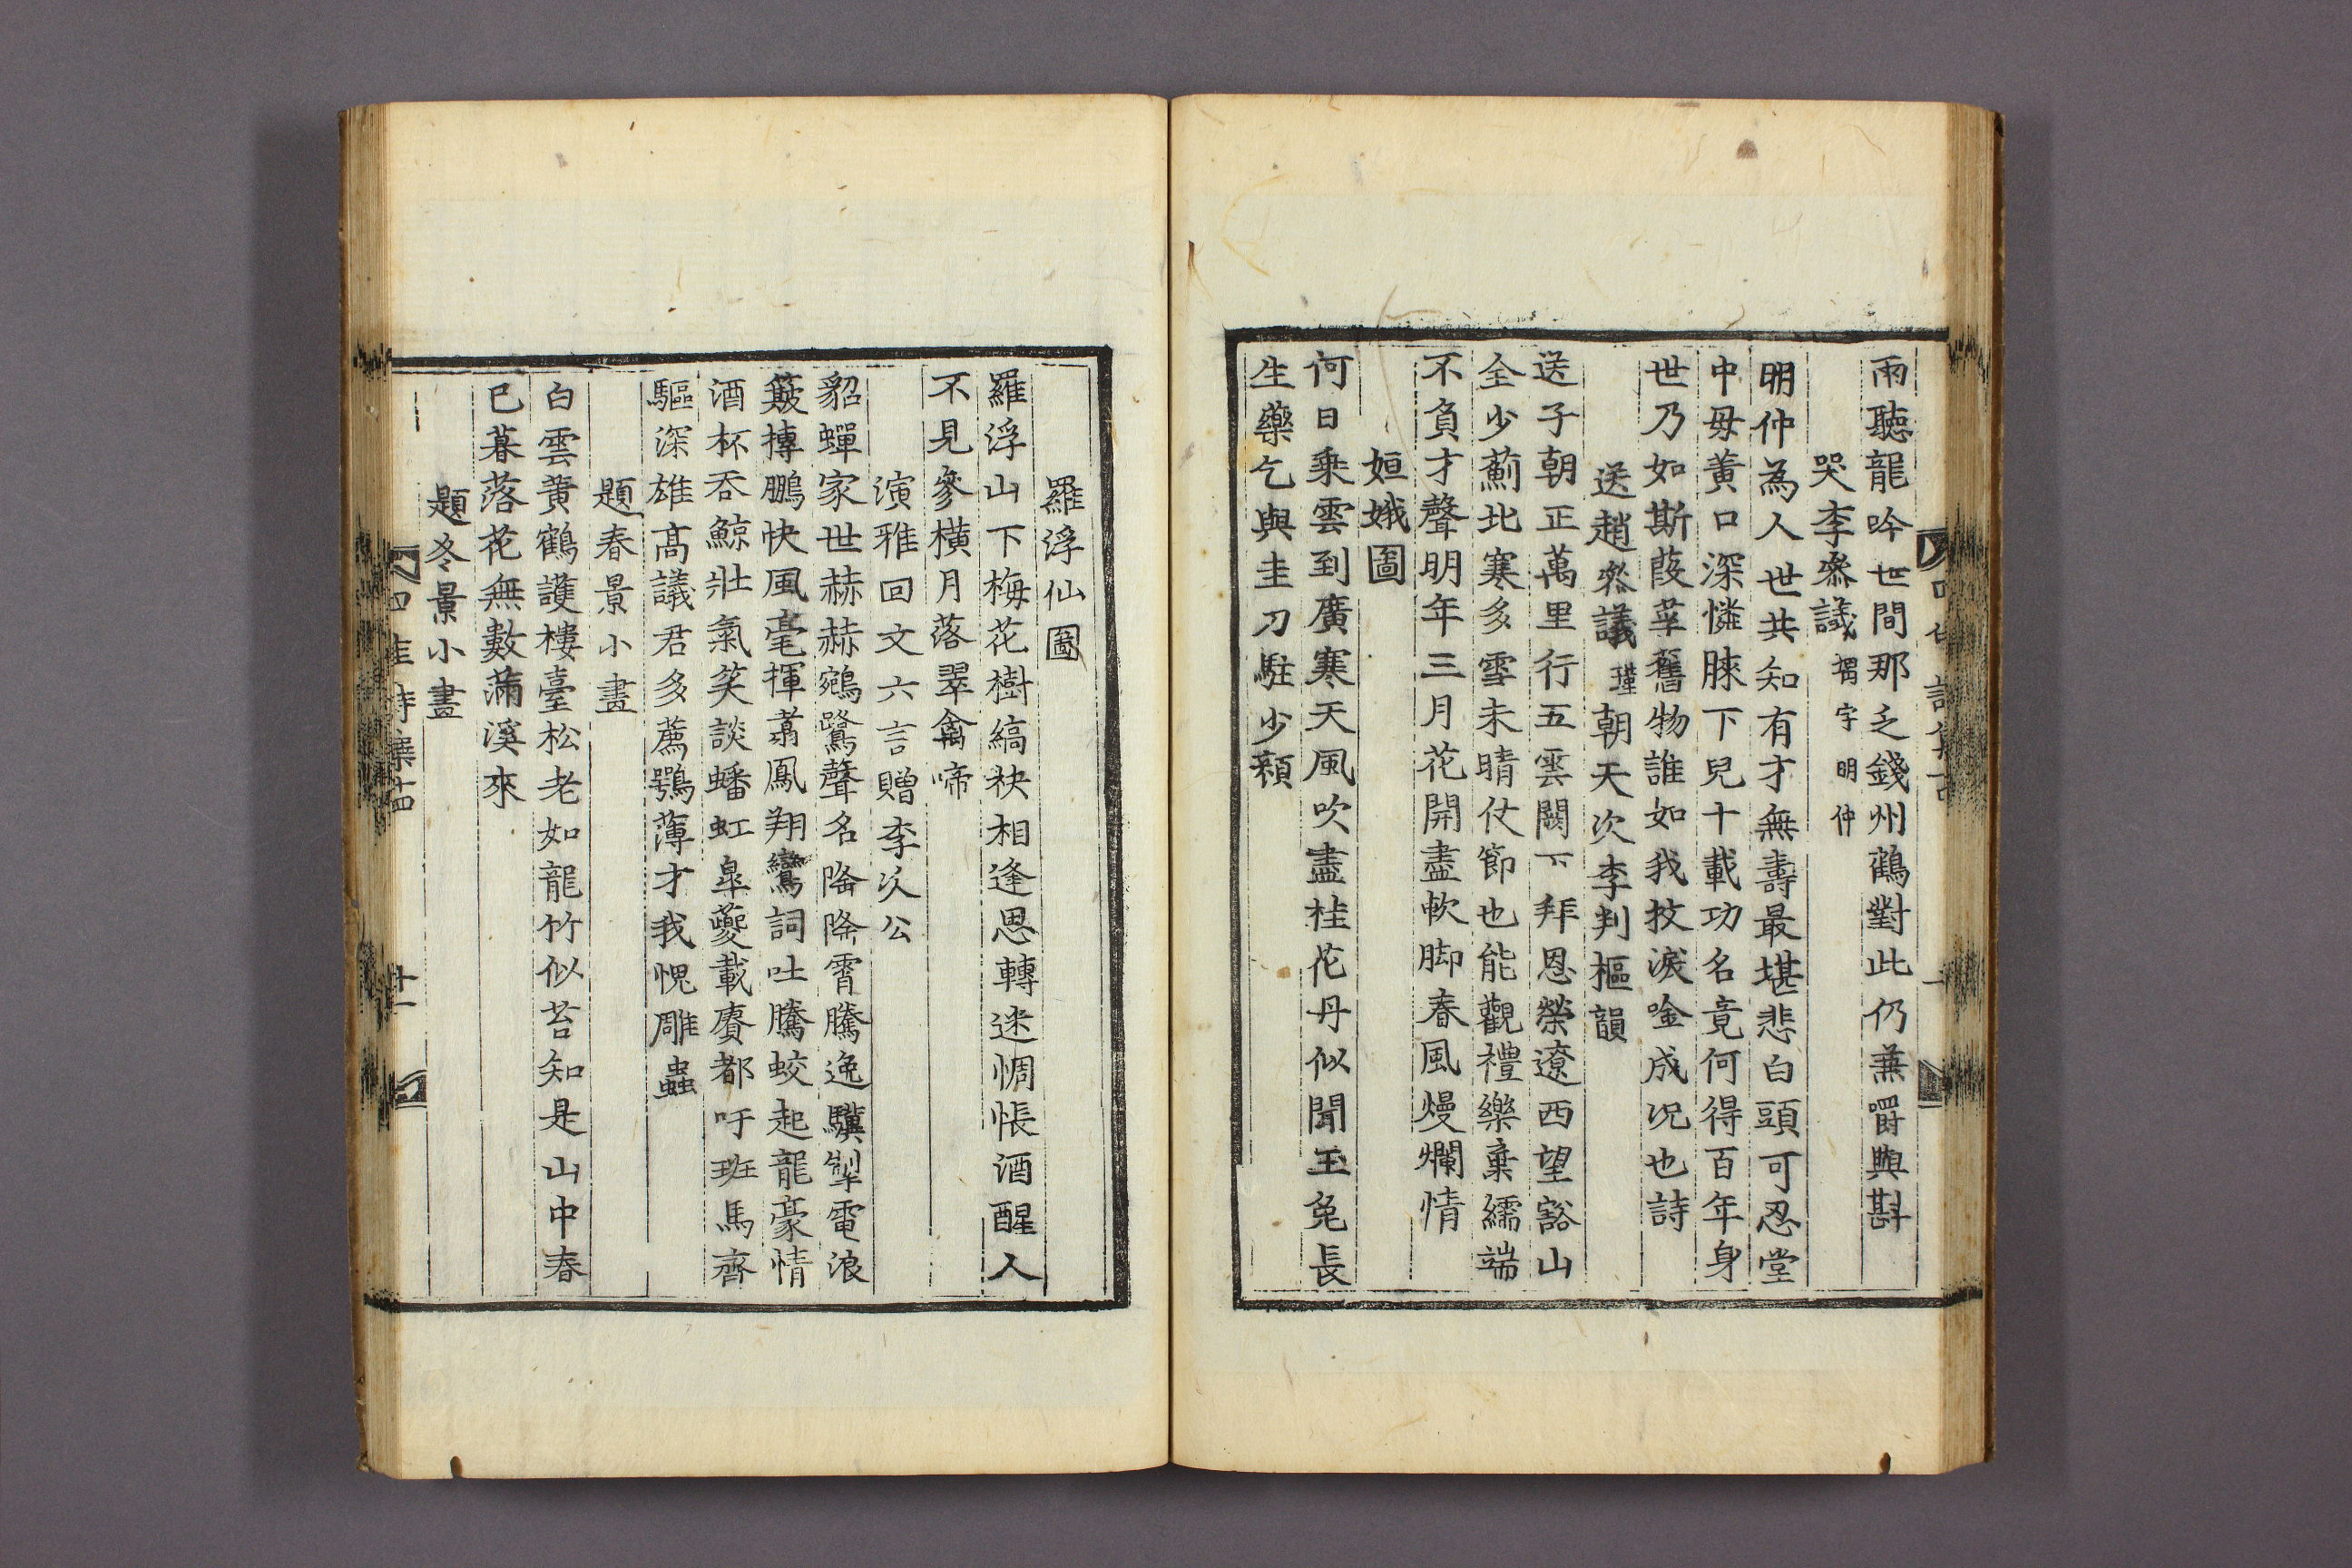 雨聽龍吟世間那乏錢州鶴對此仍兼嚼與斟
哭李叅議堣字明仲
明仲為人世共知有才無壽最堪悲白頭可忍堂
中毋黃口深憐膝下兒十載功名竟何得百年身
世乃如斯葭莩舊物誰如我抆淚唫成况也詩
送趙叅議瑾朝天次李判樞韻
送子朝正萬里行五雲闕下拜恩榮遼西望豁山
全少薊北寒多雪未晴仗節也能觀禮樂棄繻端
不負才聲明年三月花開盡軟脚春風熳爛情
姮娥圖
何日乘雲到廣寒天風吹盡桂花丹似聞玉兔長
生藥乞與圭刀駐少顏
羅浮仙圖
羅浮山下梅花樹縞袂相逢思轉迷惆悵酒醒人
不見參橫月落翠禽啼
演雅回文六言贈李次公
貂蟬家世赫赫鵷鷺聲名降降霄騰逸驥掣電浪
簸摶鵬快風毫揮翥鳳翔鸞詞吐騰蛟起龍豪情
酒杯吞鯨壯氣笑談蟠虹皐夔載賡都吁班馬齊
驅深雄高議君多薦鶚薄才我愧雕蟲
題春景小畫
白雲黃鶴護樓臺松老如龍竹似苔知是山中春
已暮落花無數滿溪來
題冬景小畫
四佳詩集十四 十一